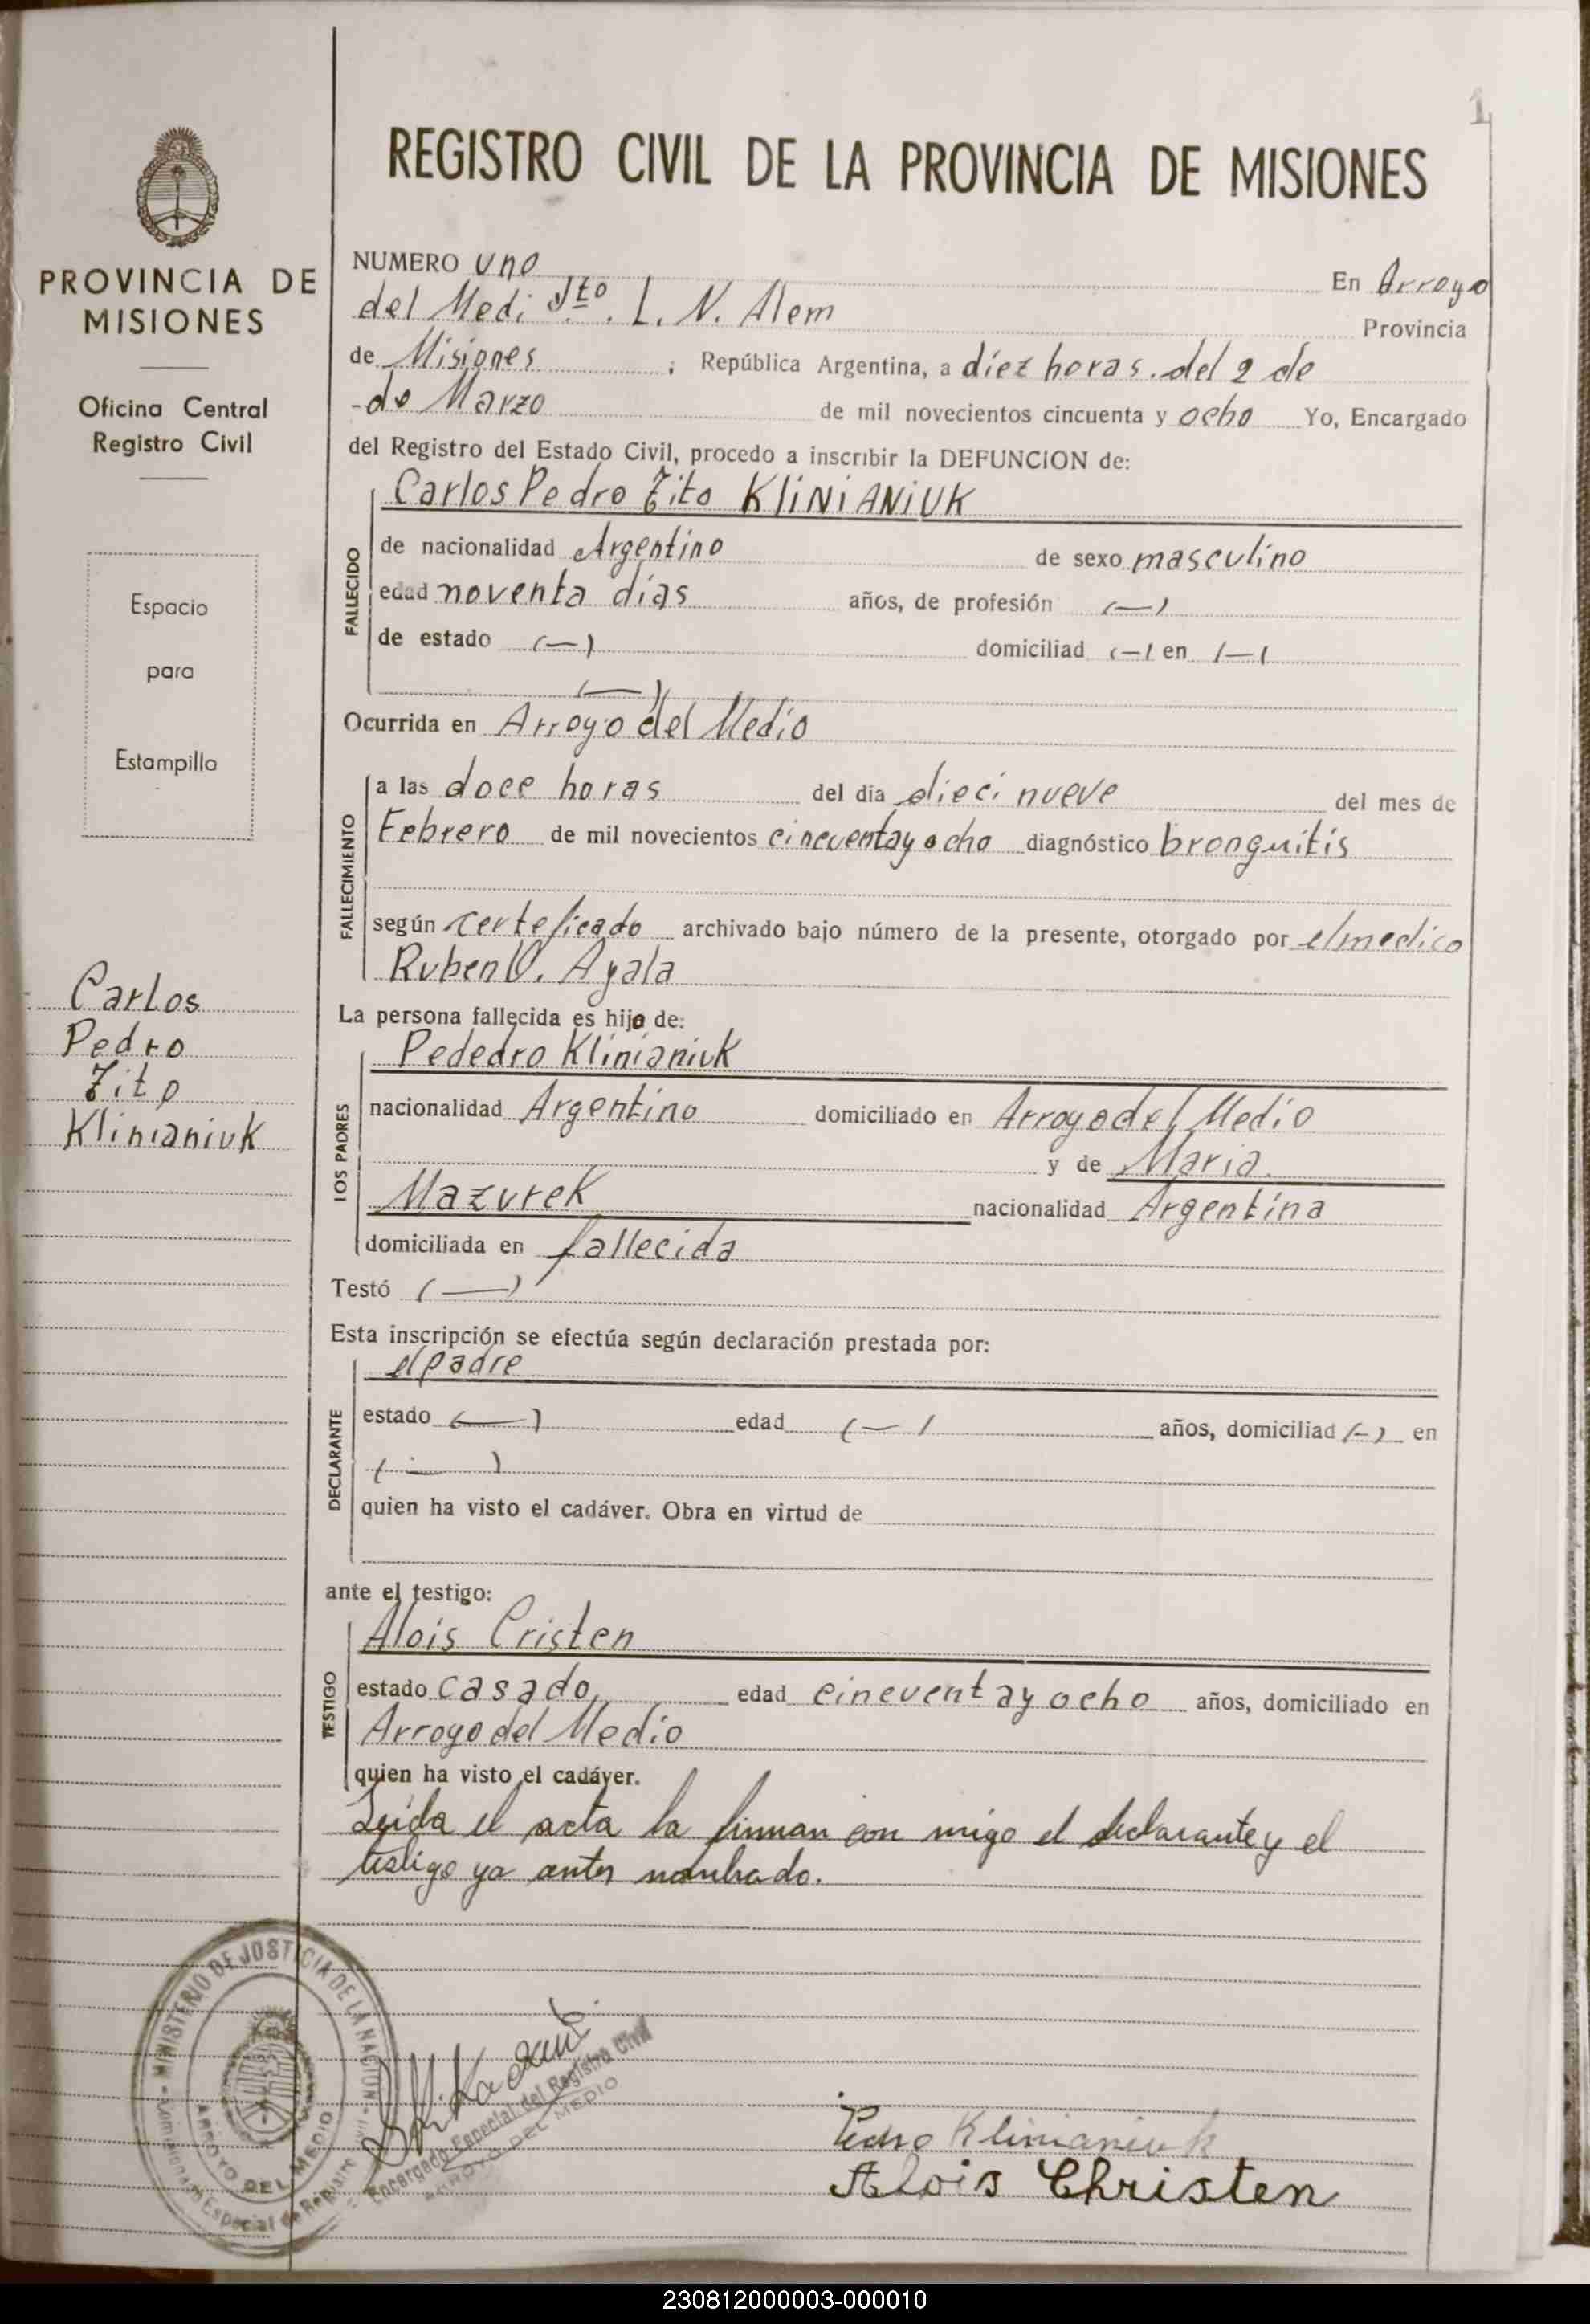 1
REGISTRO CIVIL DE LA PROVINCIA DE MISIONES
PROVINCIA DE
MISIONES
Oficina Central
Registro Civil
Espacio
para
Estampilla
Carlos
Pedro
Tito
Klinianiuk
NUMERO uno En Arroyo
del Medi Dto. L. N. Alem Provincia
de Misiones ; República Argentina, a diez horas del 2 de
-de Marzo de mil novecientos cincuenta y ocho Yo, Encargado
del Registro del Estado Civil, procedo a inscribir la DEFUNCION de:
Carlos Pedro Tito KliNiANiUK
FALLECIDO
de nacionalidad Argentino de sexo masculino
edad noventa días años, de profesión (—)
de estado (—) domiciliad (—) en (—)
(—)
Ocurrida en Arroyo del Medio
FALLECIMIENTO
a las doce horas del día dieci nueve del mes de
Febrero de mil novecientos cincuentay ocho diagnóstico bronquitis
según certeficado archivado bajo número de la presente, otorgado por el medico
Ruben O. Ayala
La persona fallecida es hijo de:
LOS PADRES
Pededro Klinianiuk
nacionalidad Argentino domiciliado en Arroyo del Medio
y de Maria
Mazurek nacionalidad Argentina
domiciliada en fallecida
Testó (—)
Esta inscripción se efectúa según declaración prestada por:
DECLARANTE
el padre
estado (—) edad (—) años, domiciliad (—) en
(—)
quien ha visto el cadáver. Obra en virtud de
ante el testigo:
TESTIGO
Alois Cristen
estado casado, edad cincuentay ocho años, domiciliado en
Arroyo del Medio
quien ha visto el cadáver.
Leida el acta la firman con migo el declarante y el
testigo ya antes nombrado.
MINISTERIO DE JUSTICIA DE LA NACION
ARROYO DEL MEDIO
Especial de Registro
Encargado Especial del Registro Civil
ARROYO DEL MEDIO
Pedro Klinianiuk
Alois Christen
230812000003-000010